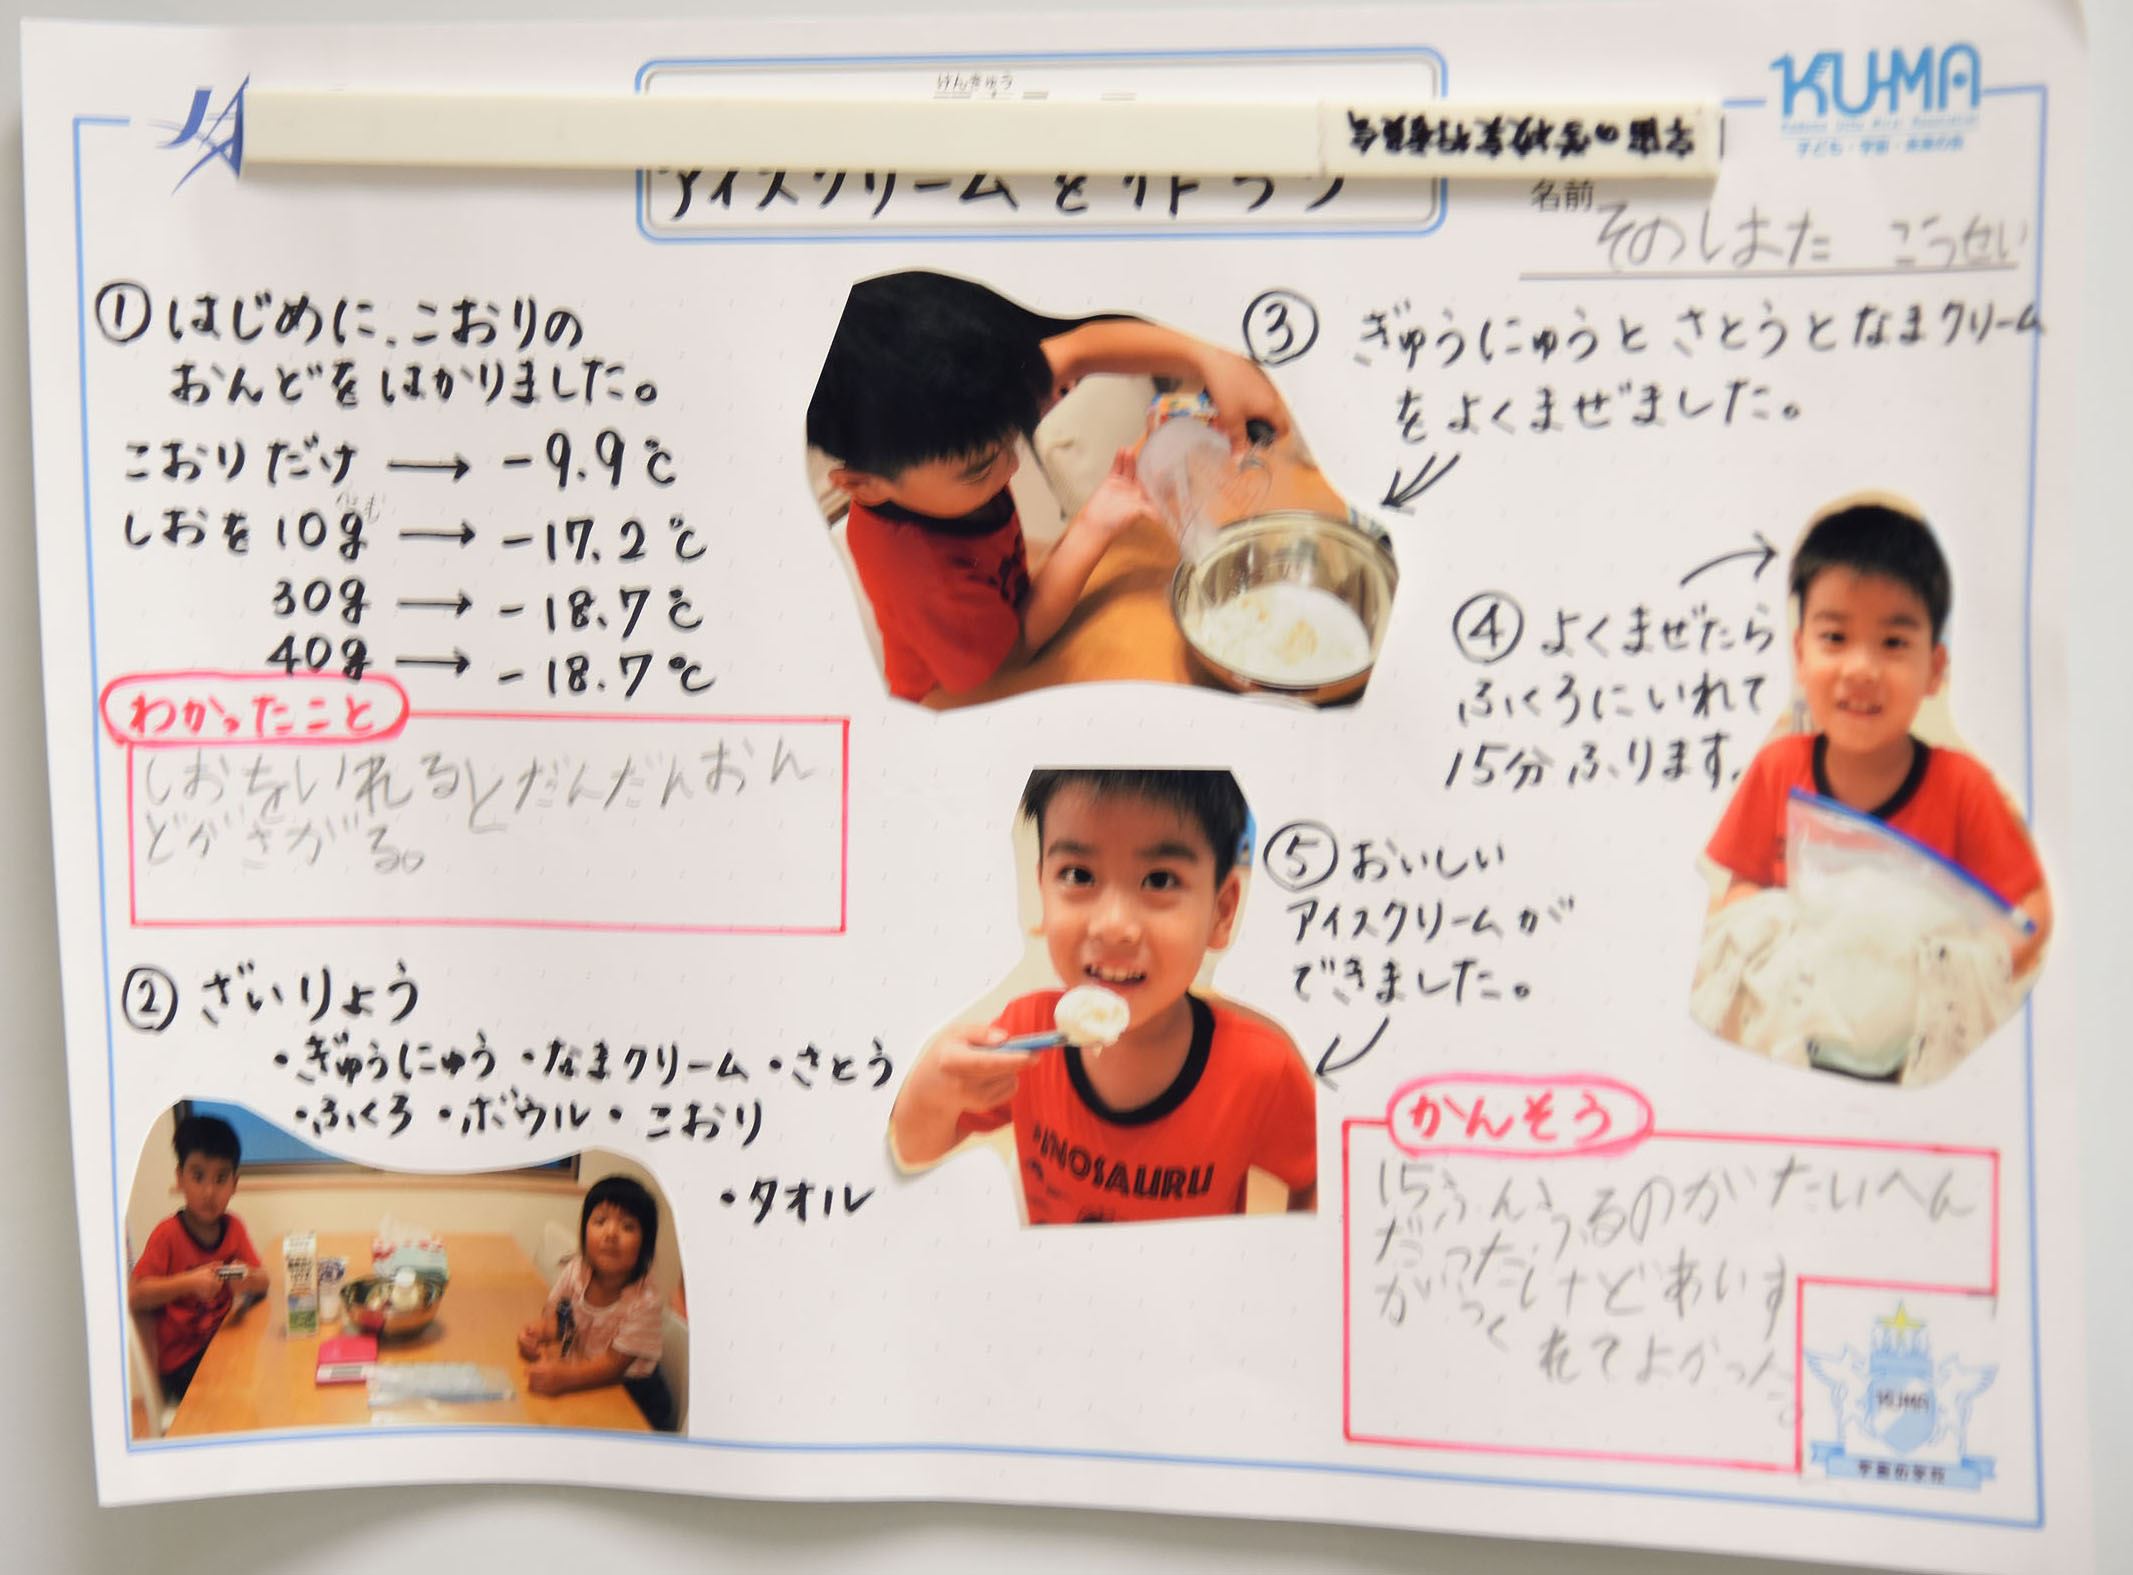 けんきゅう
宇宙の学校実行委員会
アイスクリームを作ろう
KU-MA
子ども・宇宙・未来の会
名前
そのしまた こうせい
① はじめに、こおりの
おんどをはかりました。
こおりだけ → -9.9℃
しおを10g → -17.2℃
30g → -18.7℃
40g → -18.7℃
わかったこと
しおをいれるとだんだんおん
どがさがる。
② ざいりょう
・ぎゅうにゅう・なまクリーム・さとう
・ふくろ・ボウル・こおり
・タオル
③ ぎゅうにゅうとさとうとなまクリーム
をよくまぜました。
④ よくまぜたら
ふくろにいれて
15分ふります。
⑤ おいしい
アイスクリームが
できました。
INOSAURU
かんそう
15ふんふるのがたいへん
だったけどあいす
がつくれてよかった。
KUMA
宇宙の学校